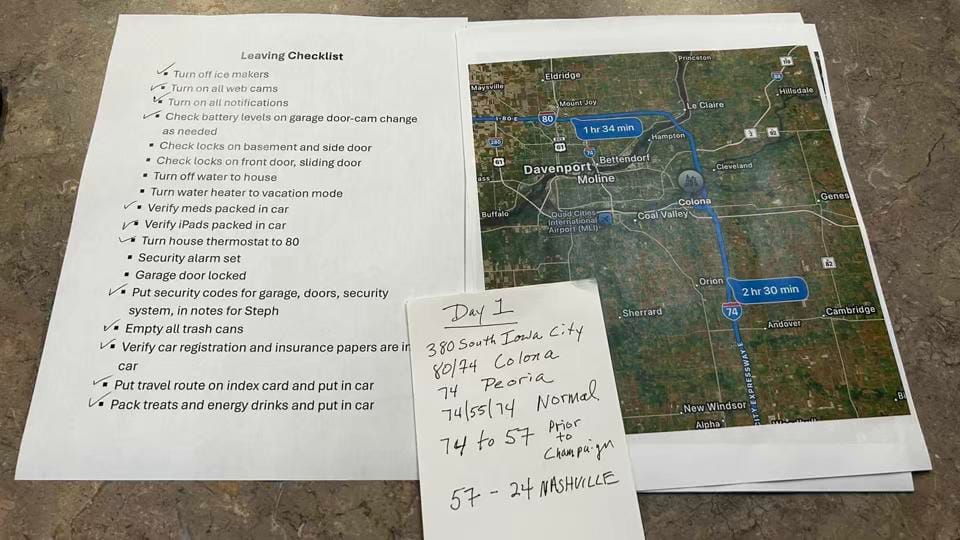 Leaving Checklist
Turn off ice makers
Turn on all web cams
Turn on all notifications
Check battery levels on garage door-cam change
as needed
Check locks on basement and side door
Check locks on front door, sliding door
Turn off water to house
Turn water heater to vacation mode
Verify meds packed in car
Verify iPads packed in car
Turn house thermostat to 80
Security alarm set
Garage door locked
Put security codes for garage, doors, security
system, in notes for Steph
Empty all trash cans
Verify car registration and insurance papers are in
car
Put travel route on index card and put in car
Pack treats and energy drinks and put in car
Princeton
Eldridge
88
Maysville
Hillsdale
Mount Joy
Le Claire
I-80 E
80
1 hr 34 min
Hampton
2
92
280
61
74
61
Davenport
Bettendorf
Cleveland
Moline
Colona
Genes
Buffalo
Quad Cities
International
Airport (MLI)
Coal Valley
82
Orion
2 hr 30 min
74
Sherrard
Cambridge
Andover
CITY EXPRESSWAY
New Windsor
Alpha
Day 1
380 South Iowa City
80/74 Colona
74 Peoria
74/55/74 Normal
74 to 57 Prior
to
Champaign
57 - 24 NASHVILLE